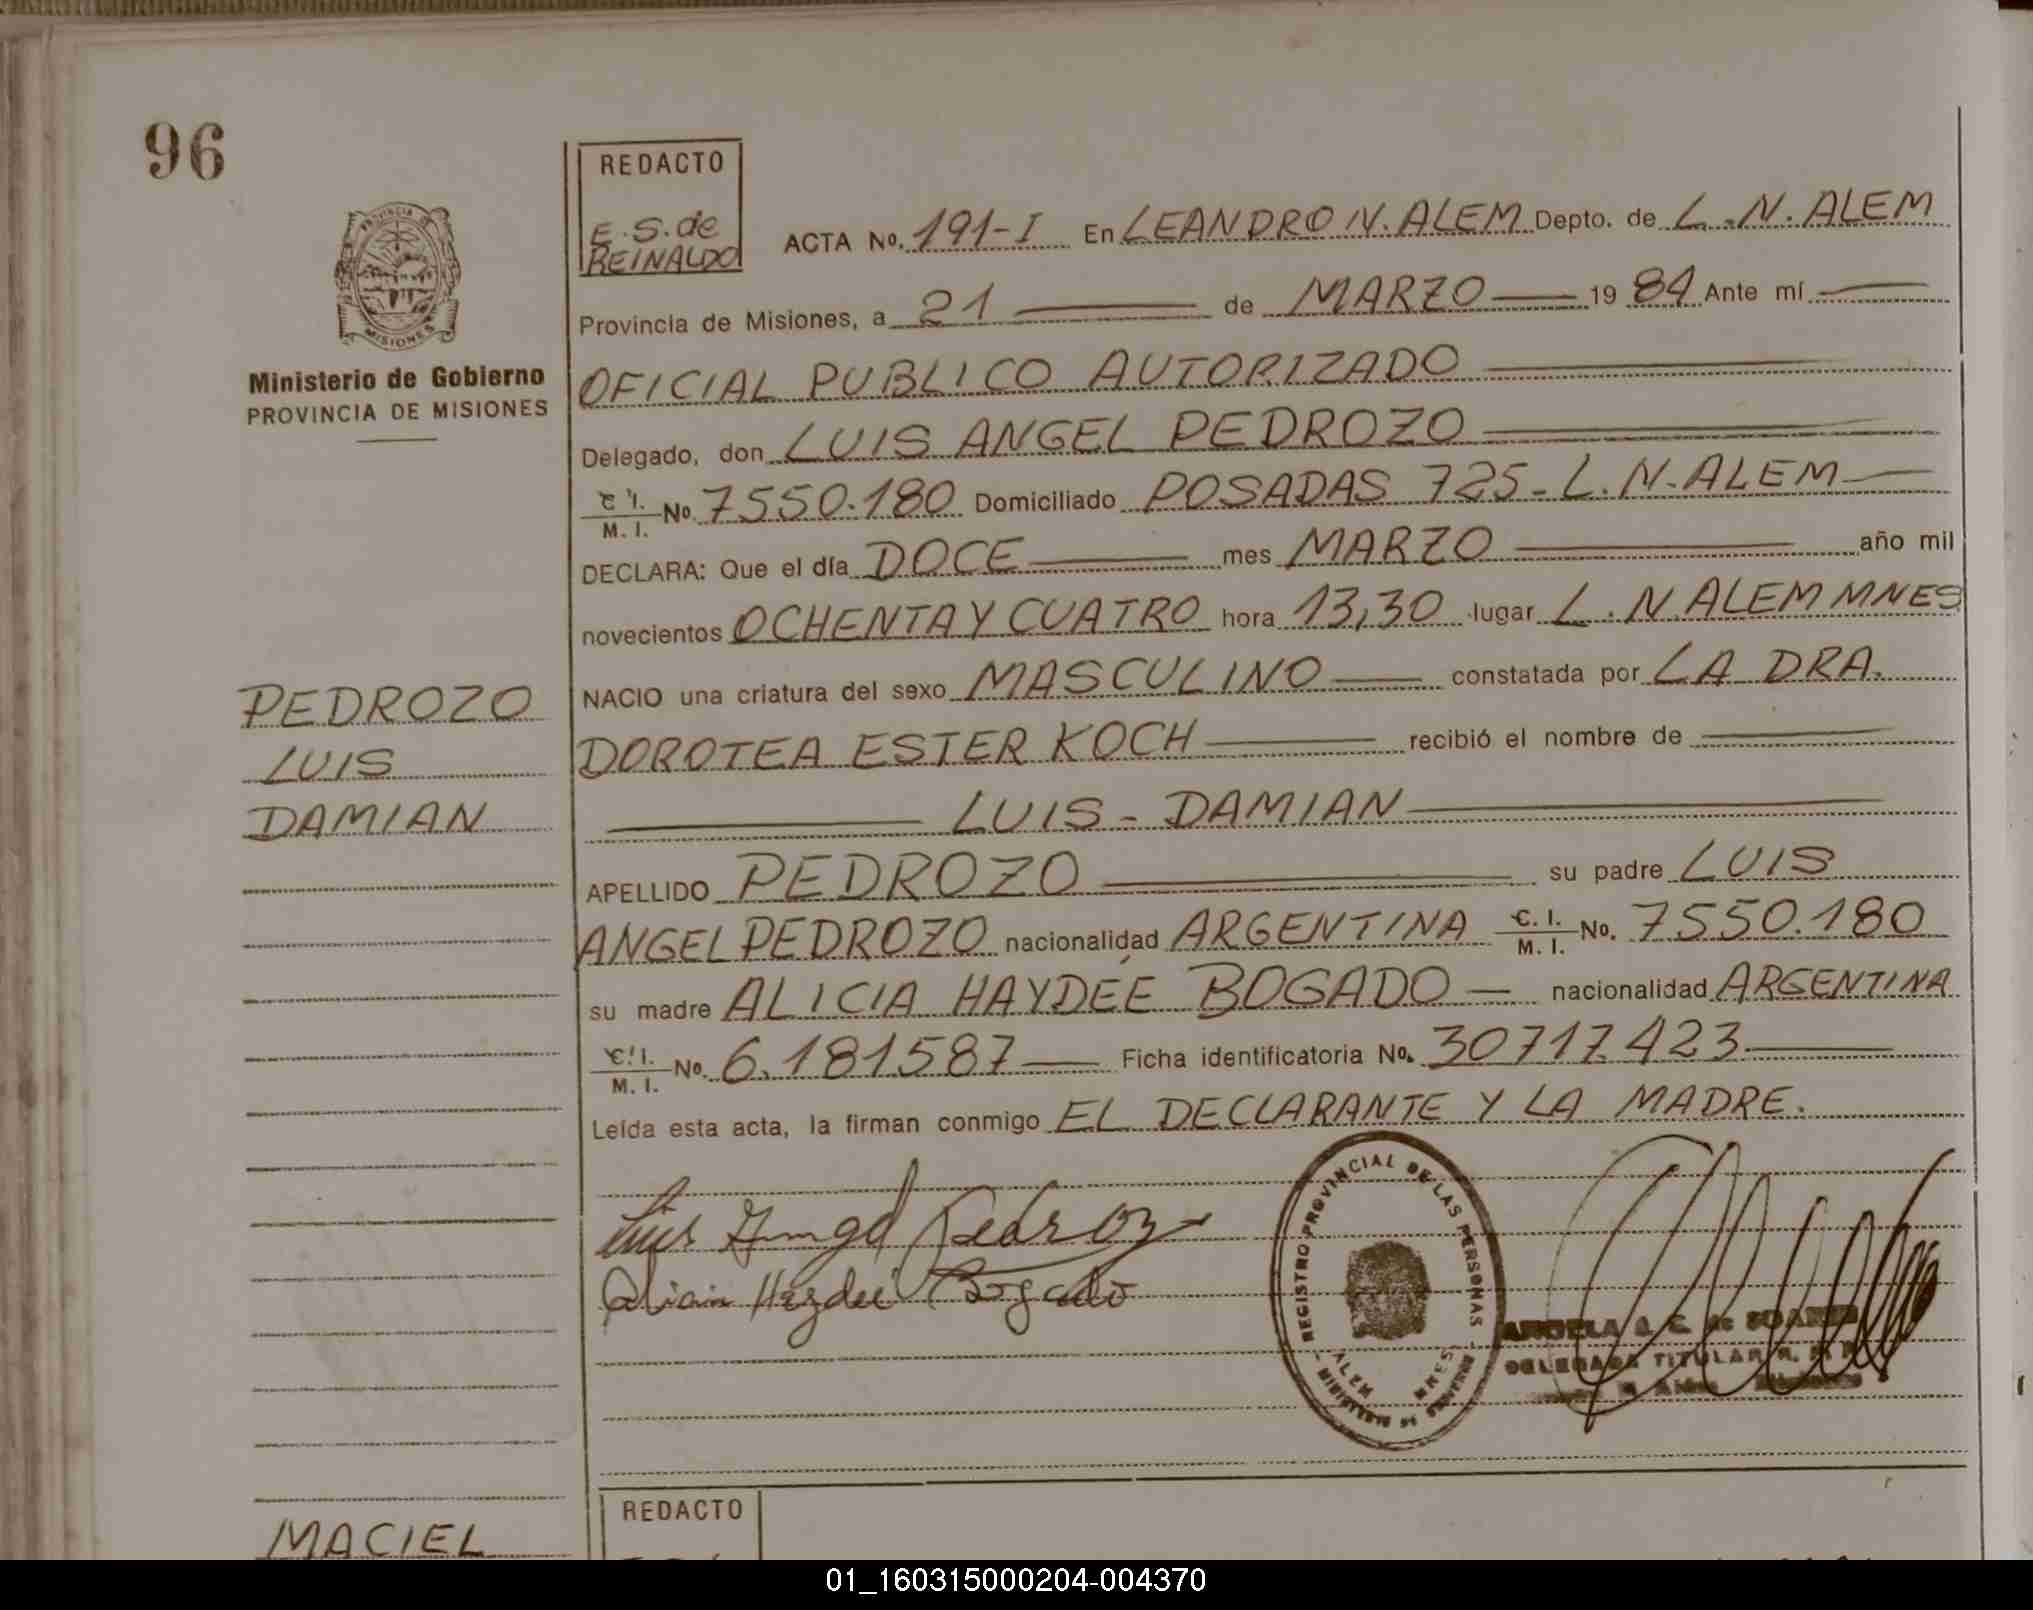 96
REDACTO
E.S. de
REINALDO
PROVINCIA DE
MISIONES
Ministerio de Gobierno
PROVINCIA DE MISIONES
ACTA No. 191-I En LEANDRO N. ALEM Depto. de L.N. ALEM
Provincia de Misiones, a 21 de MARZO 1984 Ante mí
OFICIAL PUBLICO AUTORIZADO
Delegado, don LUIS ANGEL PEDROZO
C.I. M.I. No. 7550.180 Domiciliado POSADAS 725- L.N.ALEM
DECLARA: Que el día DOCE mes MARZO año mil
novecientos OCHENTA Y CUATRO hora 13,30 lugar L.N.ALEM MNES
NACIO una criatura del sexo MASCULINO constatada por LA DRA.
DOROTEA ESTER KOCH recibió el nombre de
LUIS - DAMIAN
APELLIDO PEDROZO su padre LUIS
ANGEL PEDROZO nacionalidad ARGENTINA C.I. M.I. No. 7550.180
su madre ALICIA HAYDÉE BOGADO nacionalidad ARGENTINA
C.I. M.I. No. 6.181587 Ficha identificatoria No. 30717.423
Leída esta acta, la firman conmigo EL DECLARANTE Y LA MADRE.
PEDROZO
LUIS
DAMIAN
Luis Angel Pedrozo
Alicia Haydeé Bogado
REGISTRO PROVINCIAL DE LAS PERSONAS
ALEM MNES
MINISTERIO DE GOBIERNO
ANGELA
DELEGADA TITULAR R.
REDACTO
MACIEL
01_160315000204-004370